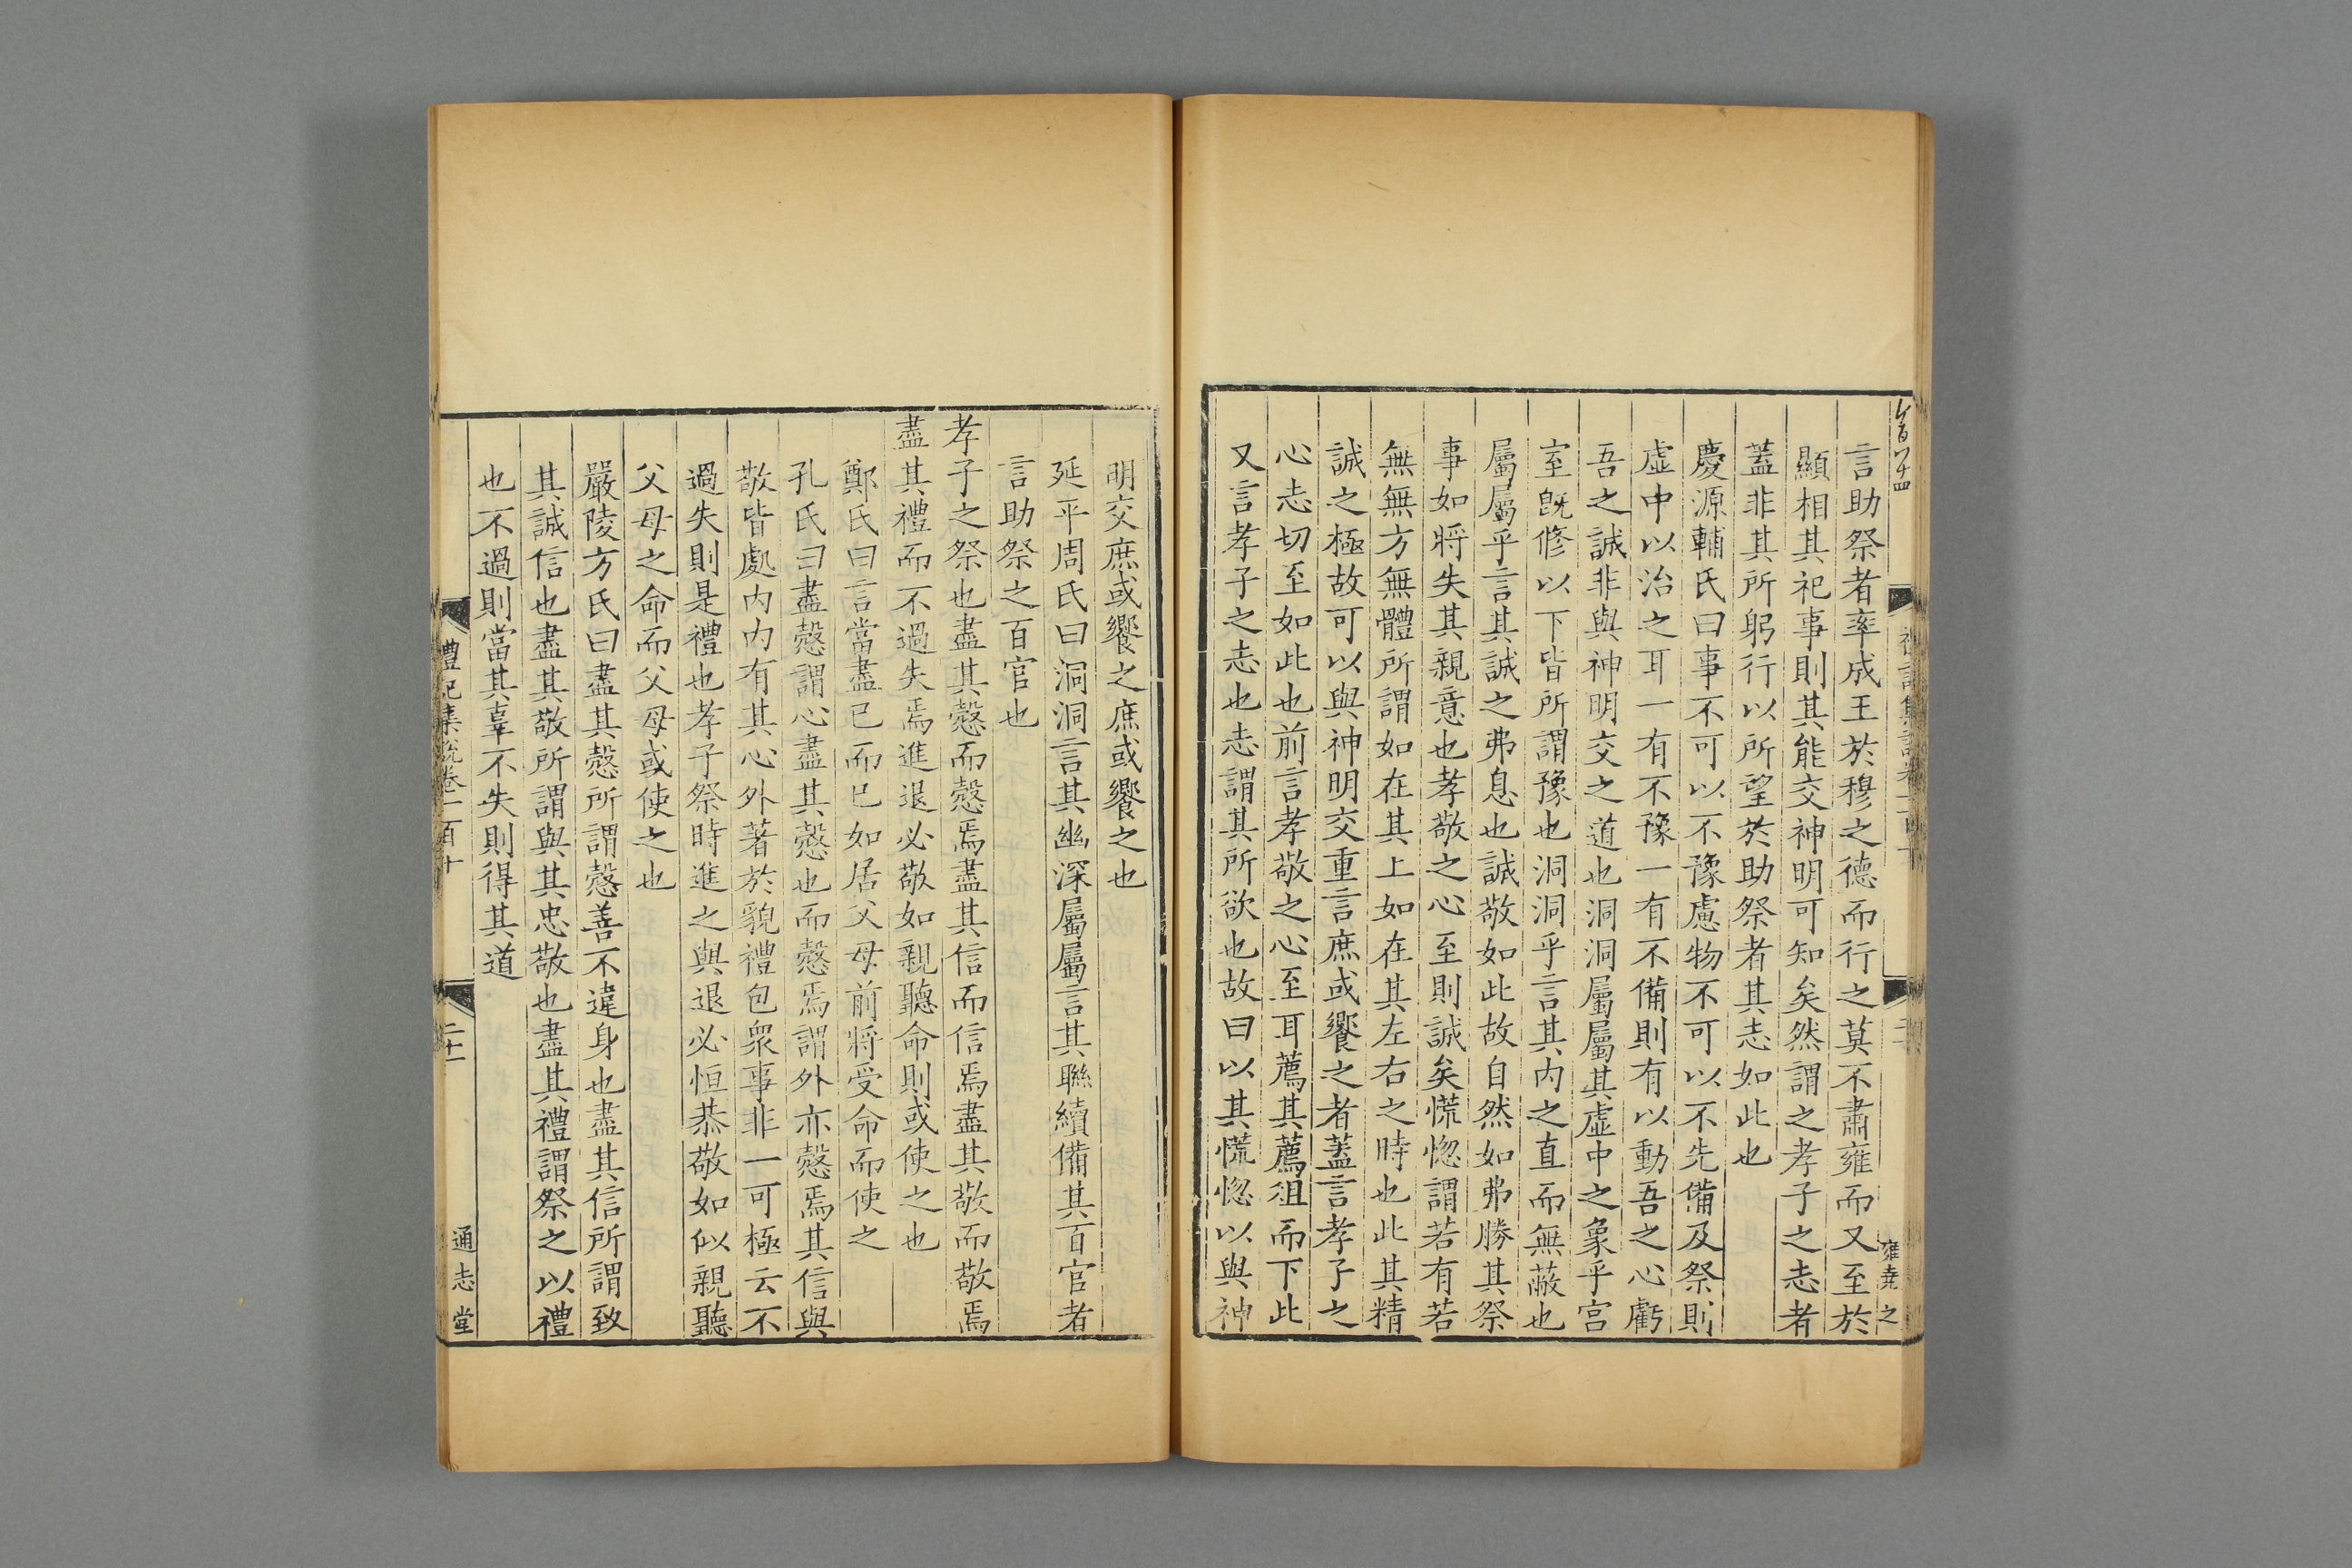 言助祭者率成王於穆之德而行之莫不肅雍而又至於
顯相其祀事則其能交神明可知矣然謂之孝子之志者
蓋非其所躬行以所望於助祭者其志如此也
慶源輔氏曰事不可以不豫慮物不可以不先備及祭則
虛中以治之耳一有不豫一有不備則有以動吾之心虧
吾之誠非與神明交之道也洞洞屬屬其虛中之象乎宮
室旣修以下皆所謂豫也洞洞乎言其內之直而無蔽也
屬屬乎言其誠之弗息也誠敬如此故自然如弗勝其祭
事如將失其親意也孝敬之心至則誠矣慌惚謂若有若
無無方無體所謂如在其上如在其左右之時也此其精
誠之極故可以與神明交重言庶或饗之者蓋言孝子之
心志切至如此也前言孝敬之心至耳薦其薦俎而下此
又言孝子之志也志謂其所欲也故曰以其慌惚以與神
明交庶或饗之庶或饗之也
延平周氏曰洞洞言其幽深屬屬言其聯續備其百官者
言助祭之百官也
孝子之祭也盡其愨而愨焉盡其信而信焉盡其敬而敬焉
盡其禮而不過失焉進退必敬如親聽命則或使之也
鄭氏曰言當盡已而已如居父母前將受命而使之
孔氏曰盡愨謂心盡其愨也而愨焉謂外亦愨焉其信與
敬皆處內內有其心外著於貌禮包衆事非一可極云不
過失則是禮也孝子祭時進之與退必恒恭敬如似親聽
父母之命而父母或使之也
嚴陵方氏曰盡其愨所謂愨善不違身也盡其信所謂致
其誠信也盡其敬所謂與其忠敬也盡其禮謂祭之以禮
也不過則當其辜不失則得其道
禮記集說卷一百十 二十一 通志堂